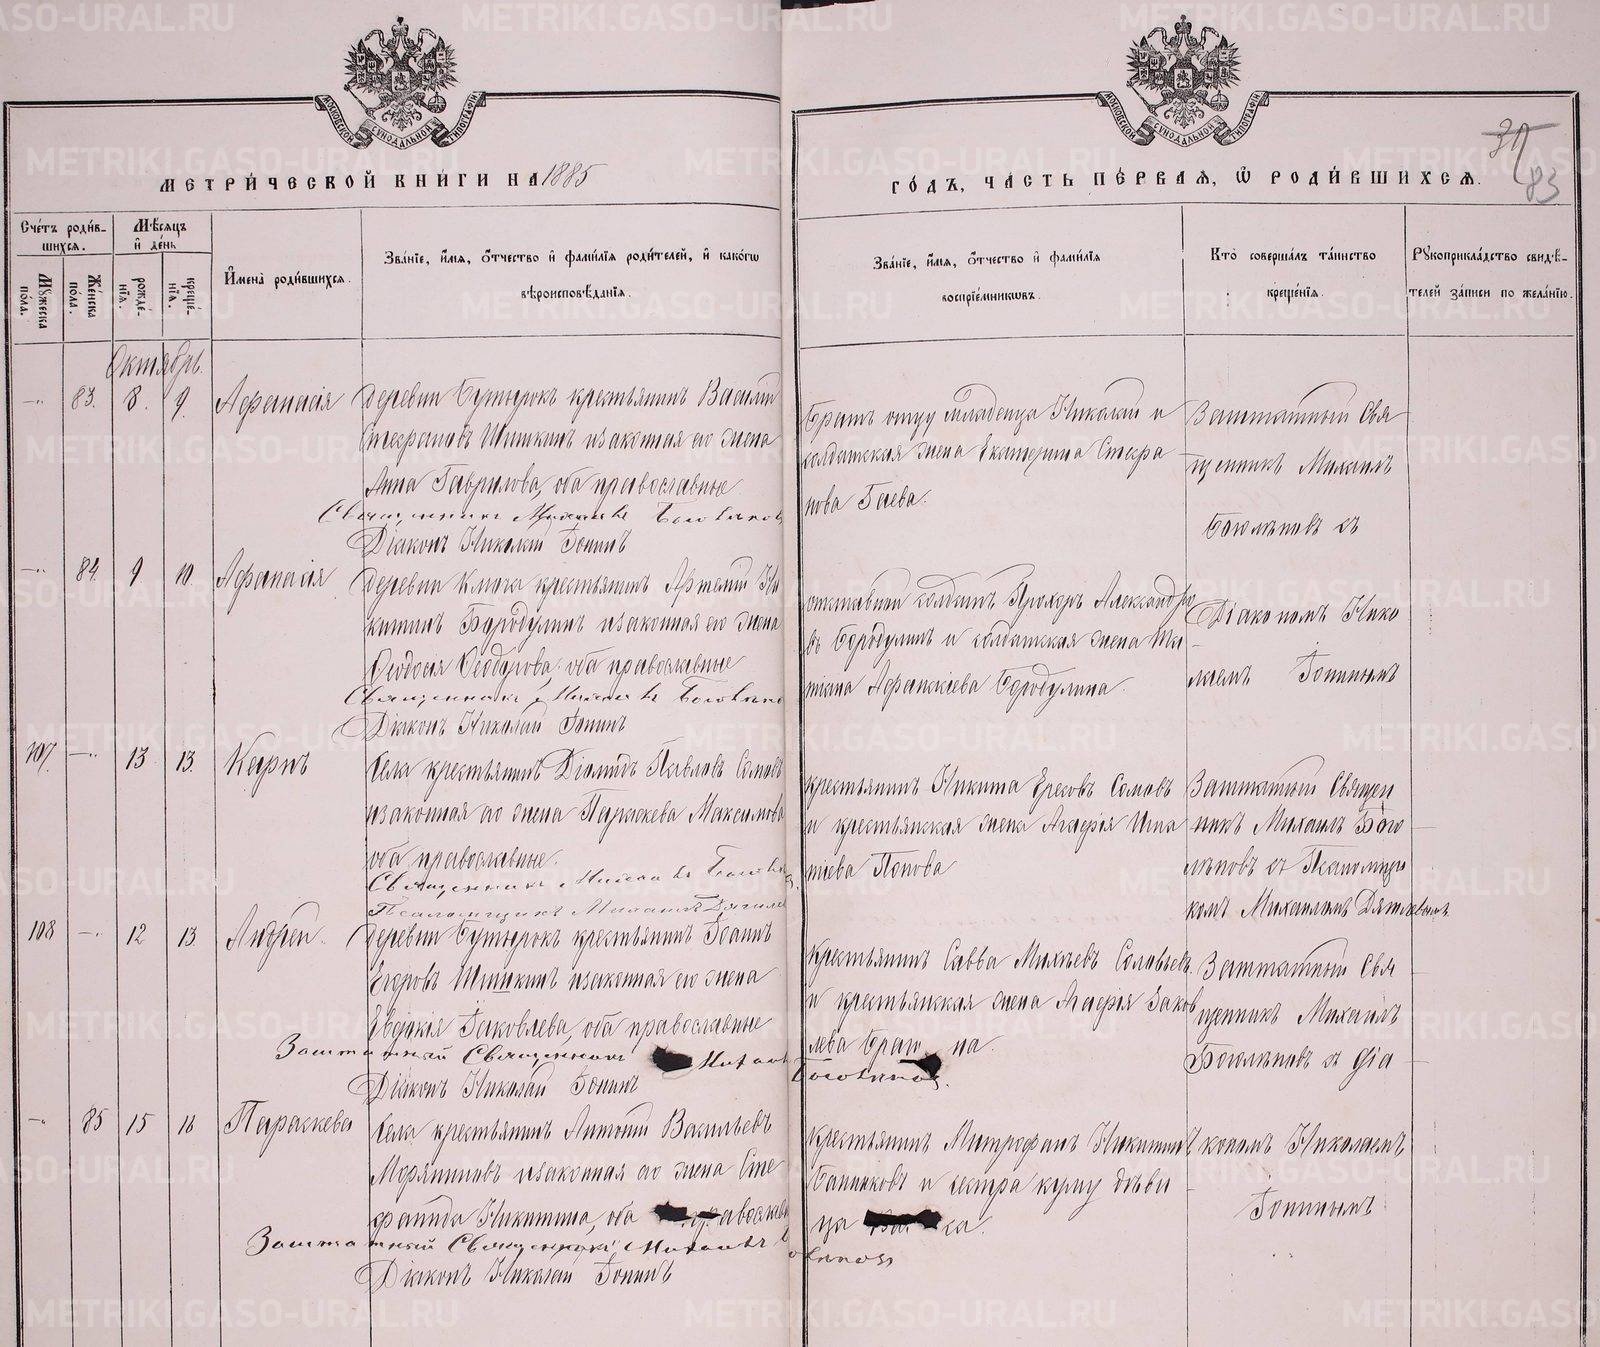 МЕТРИ́ЧЕСКОЙ КНИ́ГИ НА 1885
ГО́ДЪ, ЧА́СТЬ ПЕ́РВАЯ, Ѡ РОДИ́ВШИХСЯ.
83
Сче́тъ роди́в-
шихся.
Мѣ́сяцъ
и де́нь
Му́жеска
по́ла.
Же́нска
по́ла.
рожде́-
нїя.
креще́-
нїя.
И́мена̀ роди́вшихся.
Зва́нїе, и́мя, о́тчество и фами́лїя роди́телей, и како́гѡ
вѣроисповѣ́данїя.
Зва́нїе, и́мя, о́тчество и фами́лїя
воспрїе́мниковъ.
Кто̀ соверша́лъ та́инство
креще́нїя.
Рукоприкла́дство свидѣ́-
телей за́писи по жела́нїю.
Октябрь.
83. 8. 9. Афанасія
деревни Бутырокъ крестьянинъ Василій
Стефановъ Шишкинъ изаконная его жена
Анна Гаврилова, оба православные
Священникъ Михаилъ
Діаконъ Николай Гонинъ
Братъ отцу младенца Николай и
солдатская жена Екатерина Стефа
нова Гаева.
Заштатный Свя
щенникъ Михаилъ
Боголѣповъ съ
84. 9 10. Афанасія
деревни Ключа крестьянинъ Артемій Ни
китинъ Бородулинъ изаконная его жена
Феодосія Феодорова, оба православные
Священникъ Михаилъ
Діаконъ Николай Гонинъ
отставной солдатъ Прохоръ Александро
въ Бородулинъ и солдатская жена Та
тіана Афанасіева Бородулина.
Діакономъ Нико
лаемъ Гонинымъ
107. 13 13. Карпъ
села крестьянинъ Діомидъ Павловъ Сомовъ
изаконная его жена Параскева Максимова
оба православные.
Священникъ Михаилъ
Псаломщикъ Михаилъ
крестьянинъ Никита Сомовъ
и крестьянская жена Агафія Игна
тіева Попова
Заштатный Священ
никъ Михаилъ Бого
лѣповъ съ Псаломщи
комъ Михаиломъ Дягилевымъ
108 12 13 Андрей
деревни Бутырокъ крестьянинъ Іоаннъ
Егоровъ Шишкинъ изаконная его жена
Евдокія Іаковлева, оба православные
Заштатный Священникъ Михаилъ
Діаконъ Николай Гонинъ
Крестьянинъ Савва Михѣевъ Соловьевъ
и крестьянская жена Агафія Іаков
лева
Заштатный Свя
щенникъ Михаилъ
Боголѣповъ съ діа
85 15 16 Параскева
села крестьянинъ Антоній Васильевъ
изаконная его жена Сте
фанида Никитина, оба православные
Заштатный Священникъ Михаилъ
Діаконъ Николай Гонинъ
Крестьянинъ Митрофанъ Никитинъ
Банниковъ и сестра куму дѣви
ца
кономъ Николаемъ
Гонинымъ